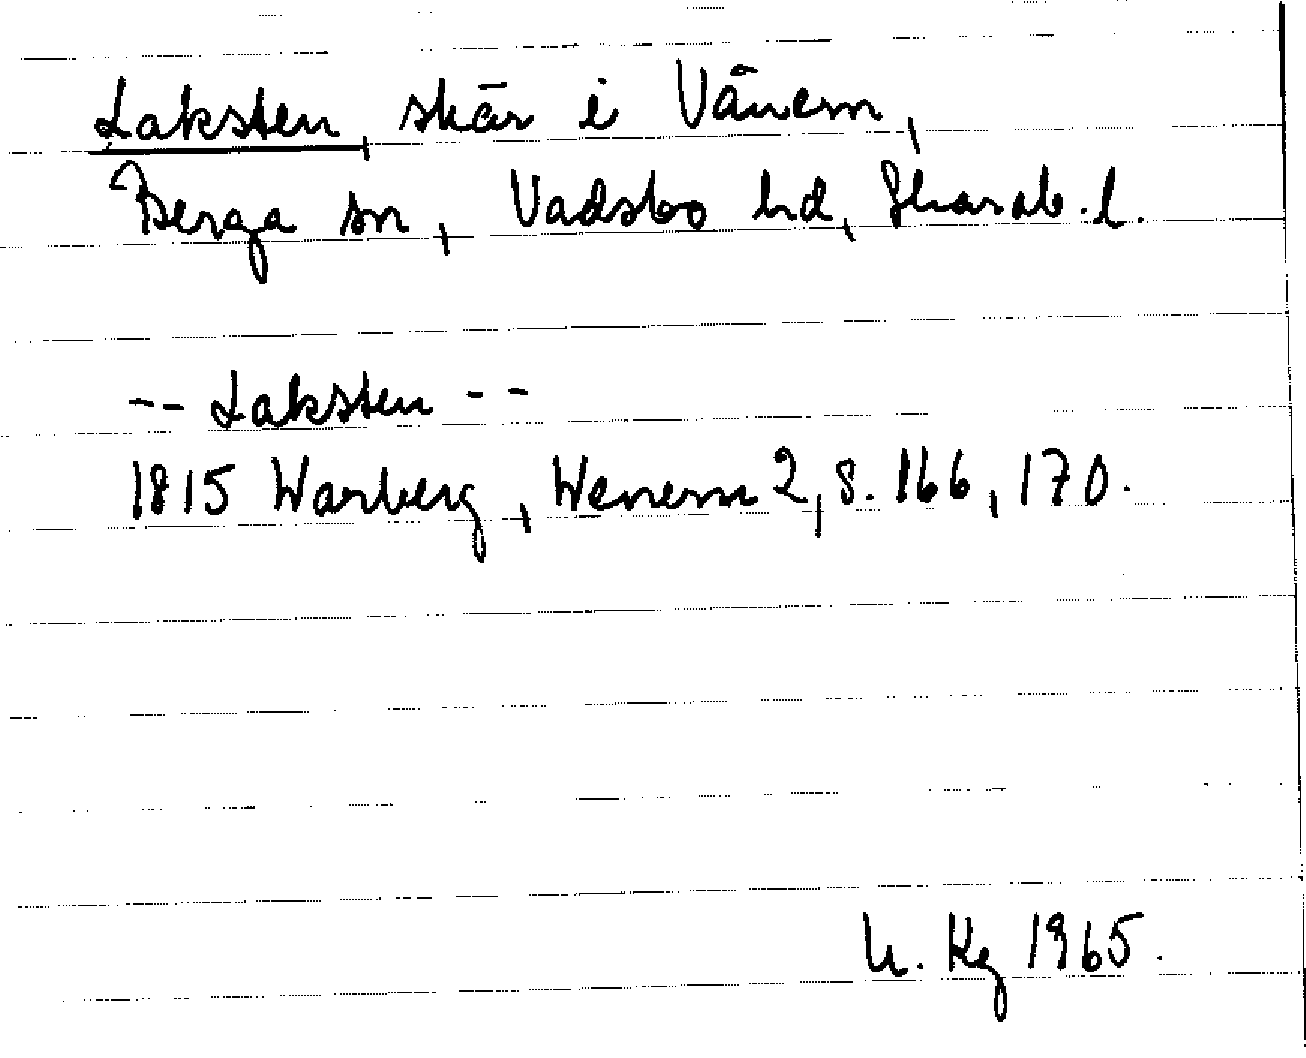 Laksten, skär i Vänern,
Berga sn, Vadsbo hd, Skarab. l.
-- Laksten --
1815 Warberg, Wenern 2, s. 166, 170.
U. Kg 1965.